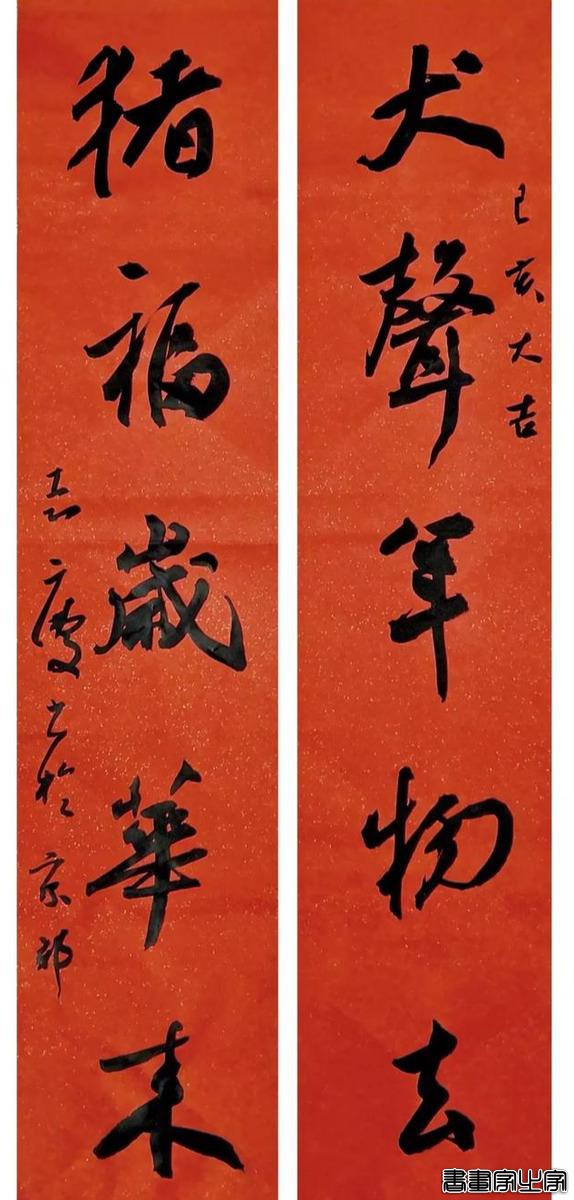 犬聲年物去
己亥大吉
猪福歲華來
志慶书於京郊
書畫家之家